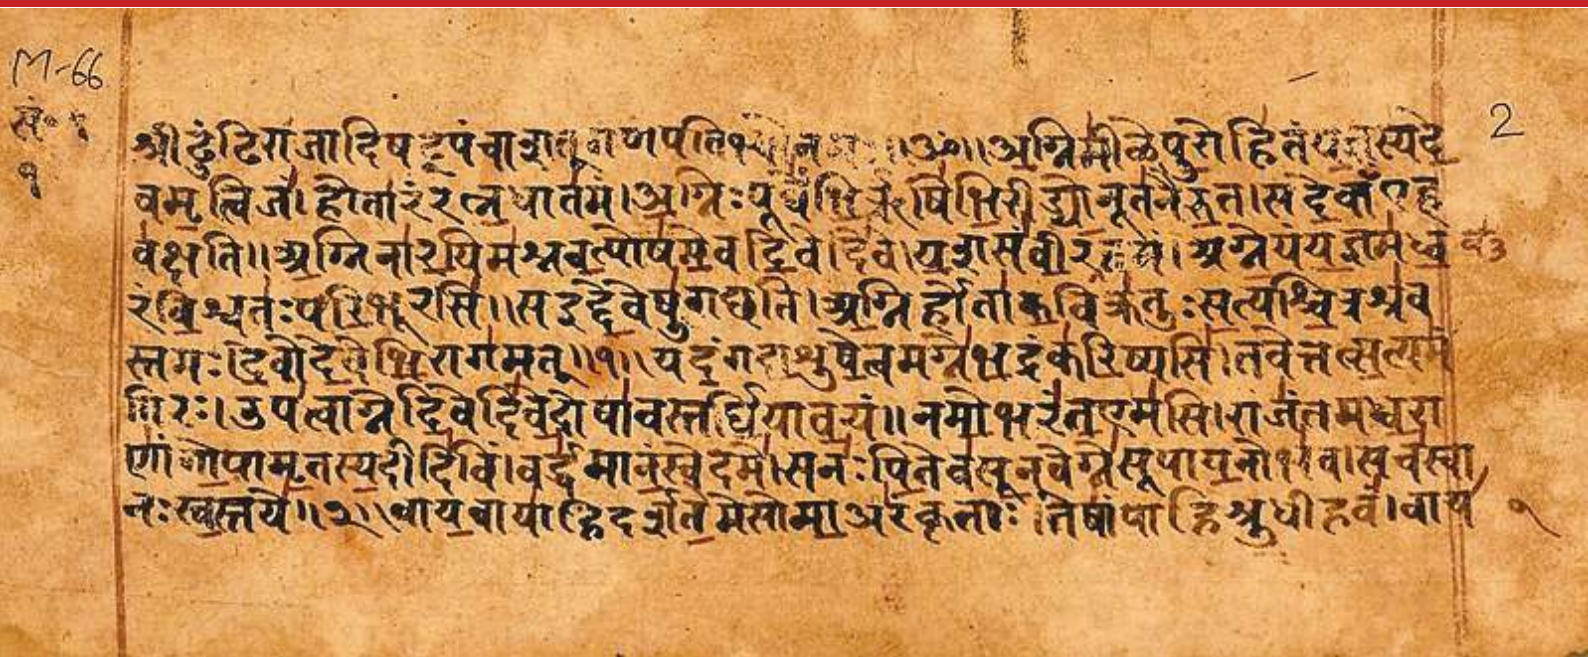 M-66
2
श्रीढुंढिराजादिषट्पंचाशतगणपतिभ्यो नमः ॥ ॐ ॥ अग्निमीळेपुरोहितंयज्ञस्यदे
वमृत्विजं। होतारंरत्नधातमं। अग्निःपूर्वेभिर्ऋषिभिरीड्योनूतनैरुत। सदेवाँएह
वक्षति॥ अग्निनारयिमश्नवत्पोषमेवदिवेदिवे। यशसंवीरवत्तमं। अग्नेयंयज्ञमध्व
रंविश्वतःपरिभूरसि॥ सइद्देवेषुगछति। अग्निर्होताकविक्रतुःसत्यश्चित्रश्रव
स्तमः। देवोदेवेभिरागमत्॥ १॥ यदंगदाशुषेत्वमग्नेभद्रंकरिष्यसि। तवेत्तत्सत्यमं
गिरः। उपत्वाग्नेदिवेदिवेदोषावस्तर्धियावयं॥ नमोभरंतएमसि। राजंतमध्वरा
णांगोपामृतस्यदीदिविं। वर्द्धमानंस्वेदमे। सनःपितेवसूनवेग्नेसूपायनोभव। सचस्वा
नःस्वस्तये॥ २॥ वायवायाहिदर्शतेमेसोमाअरंकृताः। तेषांपाहिश्रुधीहवं। वाय
१